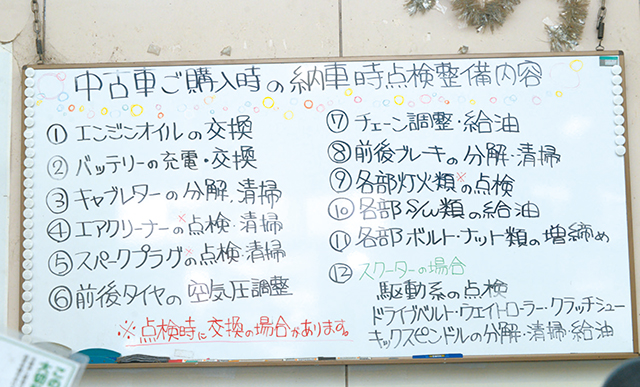 中古車ご購入時の納車時点検整備内容
① エンジンオイルの交換
② バッテリーの充電・交換
③ キャブレターの分解.清掃
④ エアクリーナーの※点検・清掃
⑤ スパークプラグの※点検・清掃
⑥ 前後タイヤの空気圧調整
※点検時に交換の場合があります。
⑦ チェーン調整・給油
⑧ 前後ブレーキの分解・清掃
⑨ 各部灯火類※の点検
⑩ 各部S/W類の給油
⑪ 各部ボルト・ナット類の増締め
⑫ スクーターの場合
駆動系の点検
ドライブベルト・ウェイトローラー・クラッチシュー
キックスピンドルの分解・清掃・給油